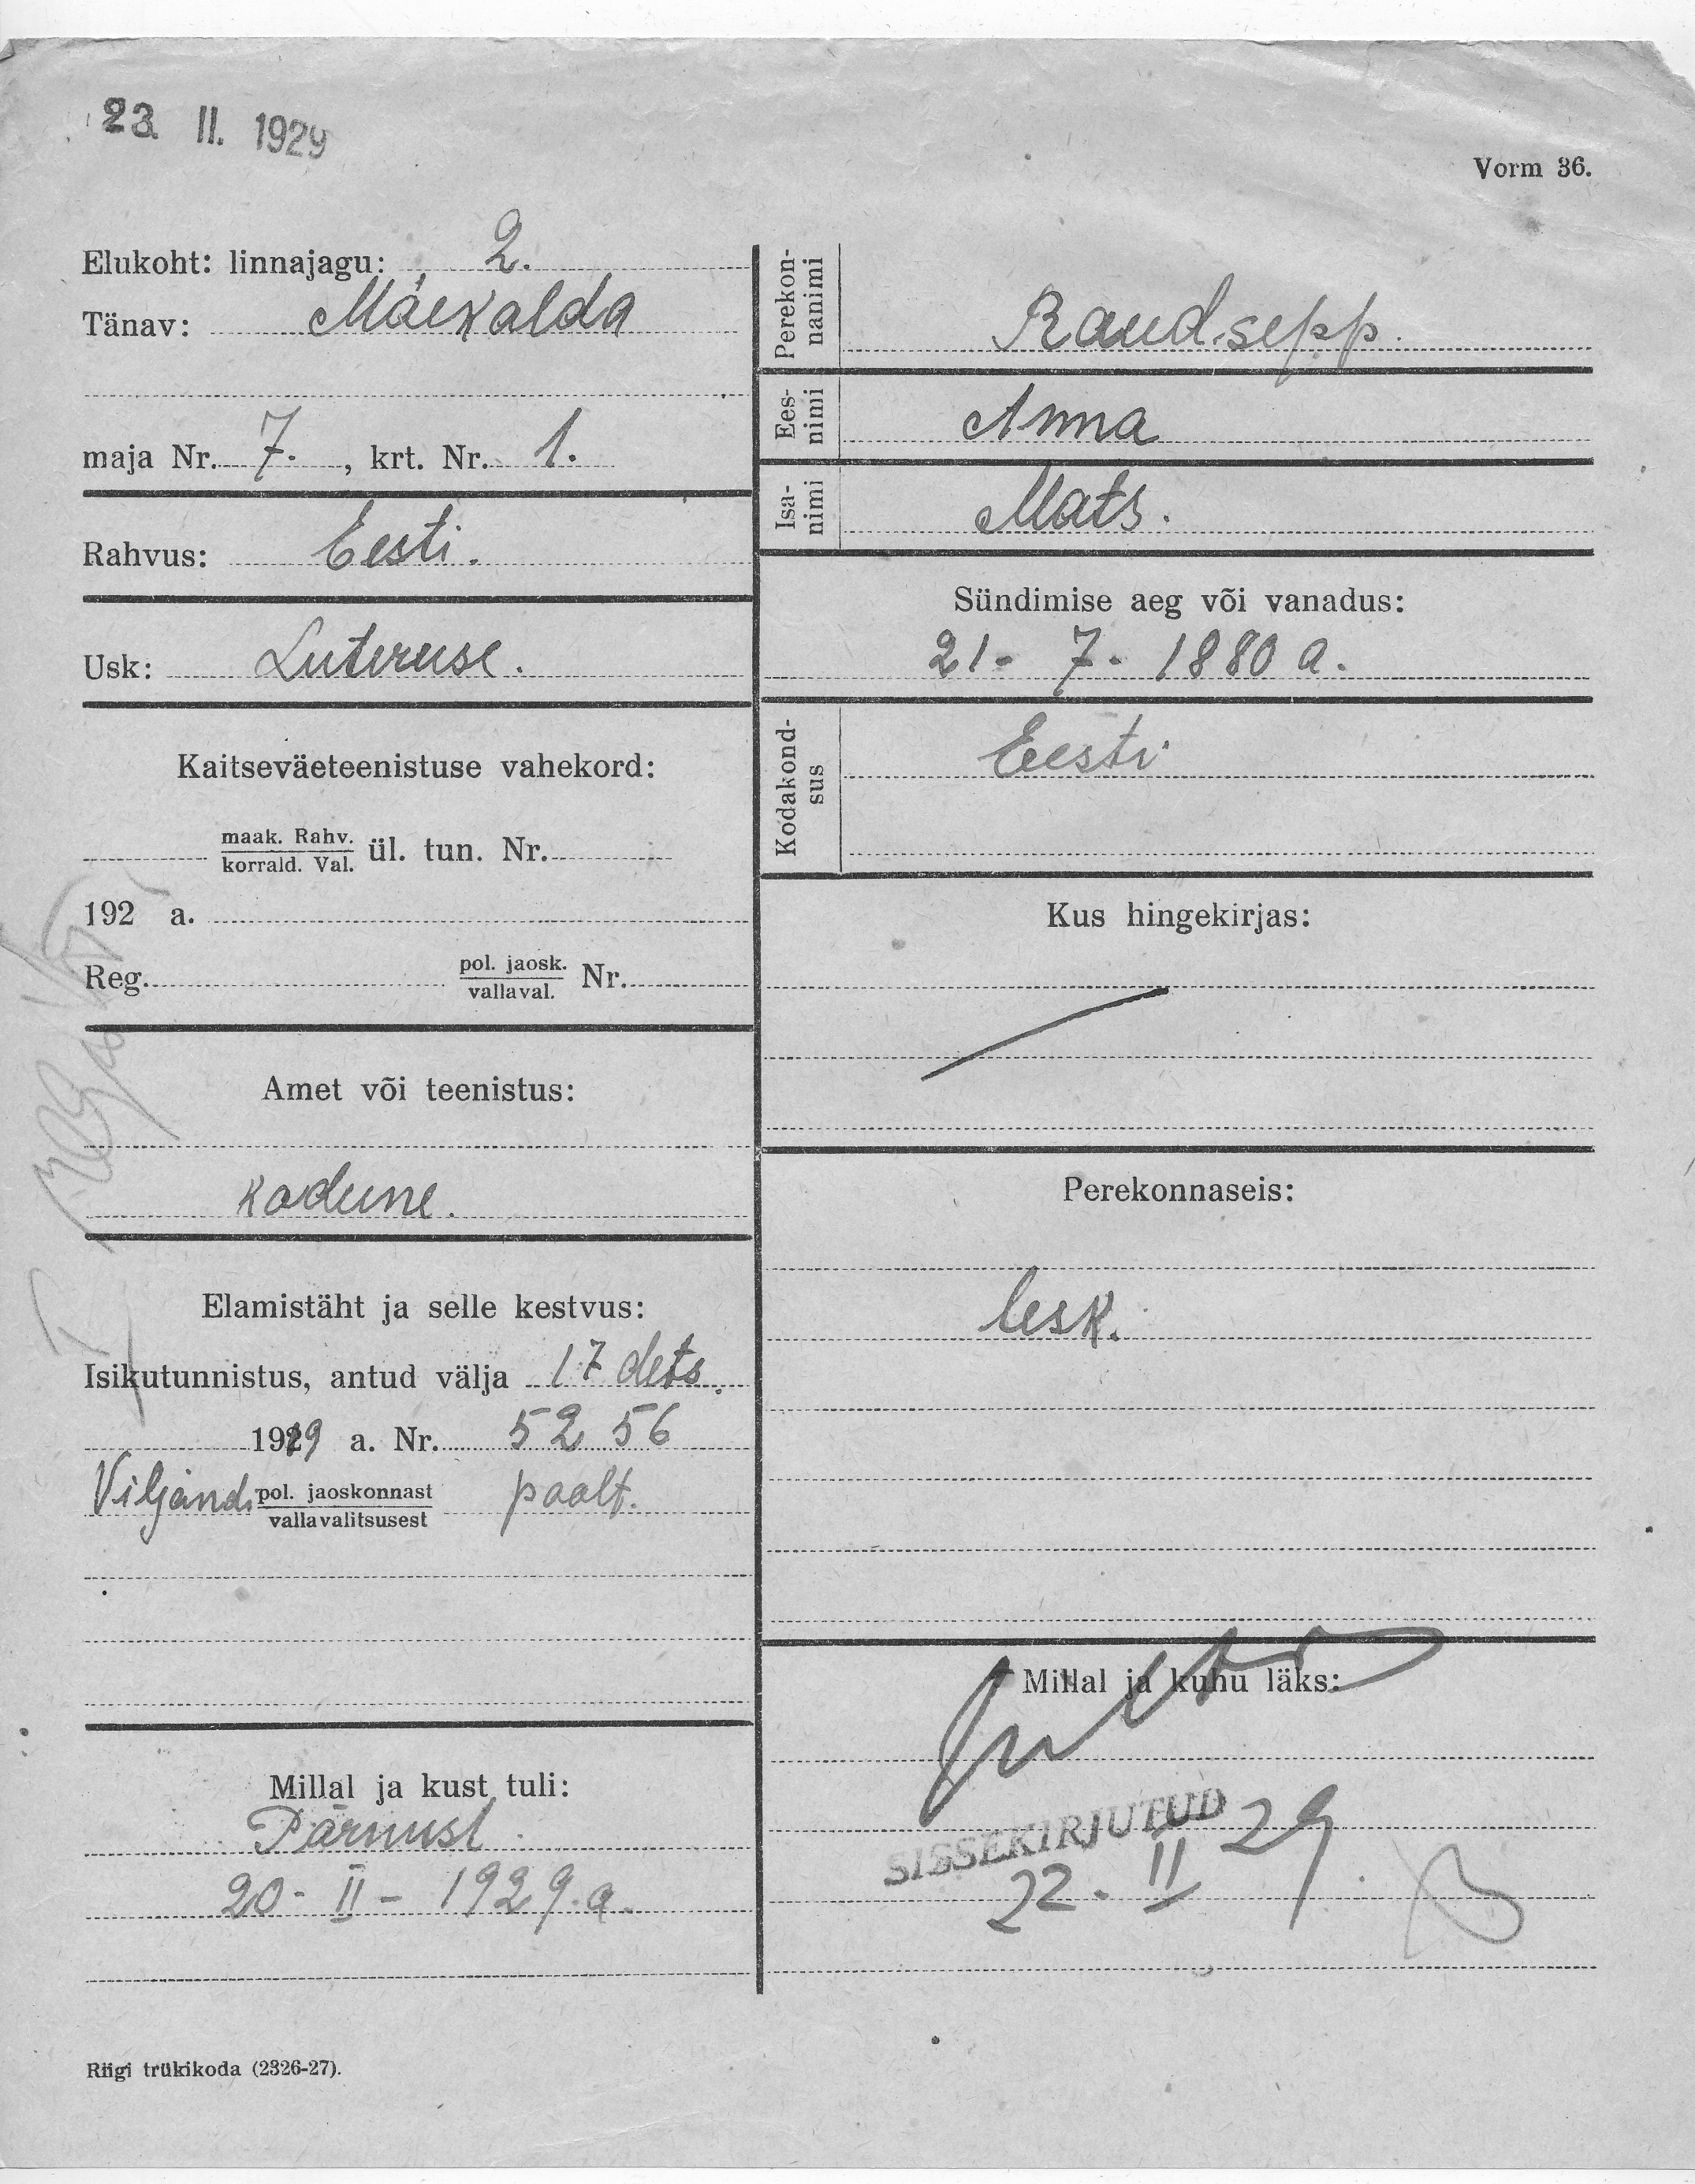 23. II. 1929
Vorm 36.
Elukoht: linnajagu: 2.
Tänav: Mäekalda
maja Nr. 7. , krt. Nr. 1.
Rahvus: Eesti.
Usk: Luteruse.
Kaitseväeteenistuse vahekord:
maak. Rahv.
korrald. Val. ül. tun. Nr.
192 a.
Reg. pol. jaosk.
vallaval. Nr.
Amet või teenistus:
kodune.
Elamistäht ja selle kestvus:
Isikutunnistus, antud välja 17 dets.
1919 a. Nr. 5256
Viljandi pol. jaoskonnast
vallavalitsusest paalt.
Millal ja kust tuli:
Pärnust.
20 - II - 1929. a.
Riigi trükikoda (2326-27).
Perekon-
nanimi
Raudsepp.
Ees-
nimi
Anna
Isa-
nimi
Mats.
Sündimise aeg või vanadus:
21. 7. 1880 a.
Kodakond-
sus
Eesti
Kus hingekirjas:
Perekonnaseis:
lesk.
Millal ja kuhu läks:
SISSEKIRJUTUD
22. II 29.